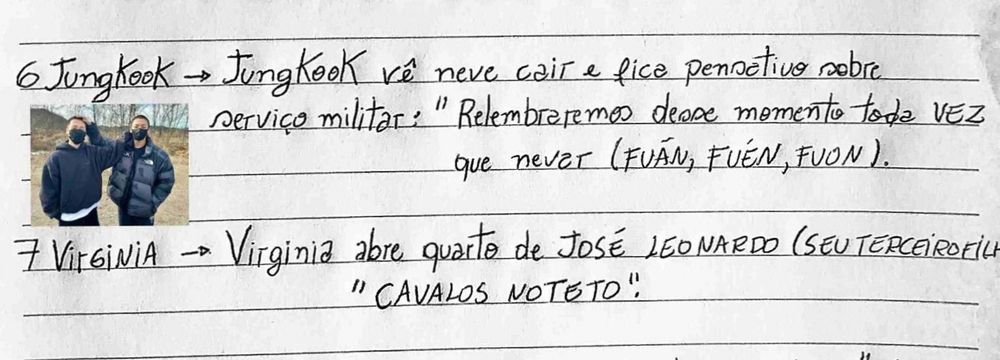 6 JungKook → JungKook vê neve cair e fica pensativo sobre
serviço militar: "Relembraremos desse momento toda VEZ
que nevar (FUÃN, FUÉN, FUON).
7 VIRGINIA → Virginia abre quarto de JOSÉ LEONARDO (SEU TERCEIRO FILH
"CAVALOS NO TETO".